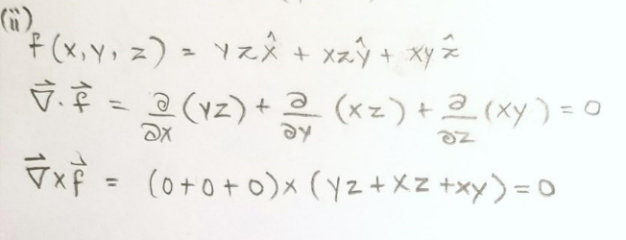 (ii)
f(x, y, z) = yzx̂ + xzŷ + xyẑ
∇⃗·f⃗ = ∂/∂x (yz) + ∂/∂y (xz) + ∂/∂z (xy) = 0
∇⃗×f⃗ = (0+0+0)×(yz+xz+xy)=0